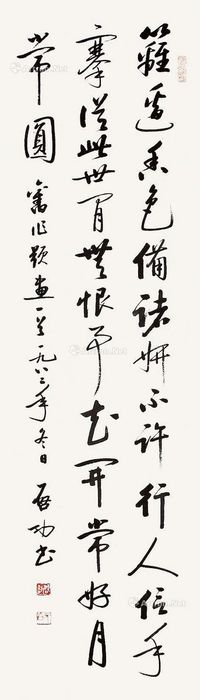 籬邊春色備諸妍不許行人信手
搴從此世間無恨事花開常好月
常圓 舊作題畫一首一九八三年冬日 啟功書